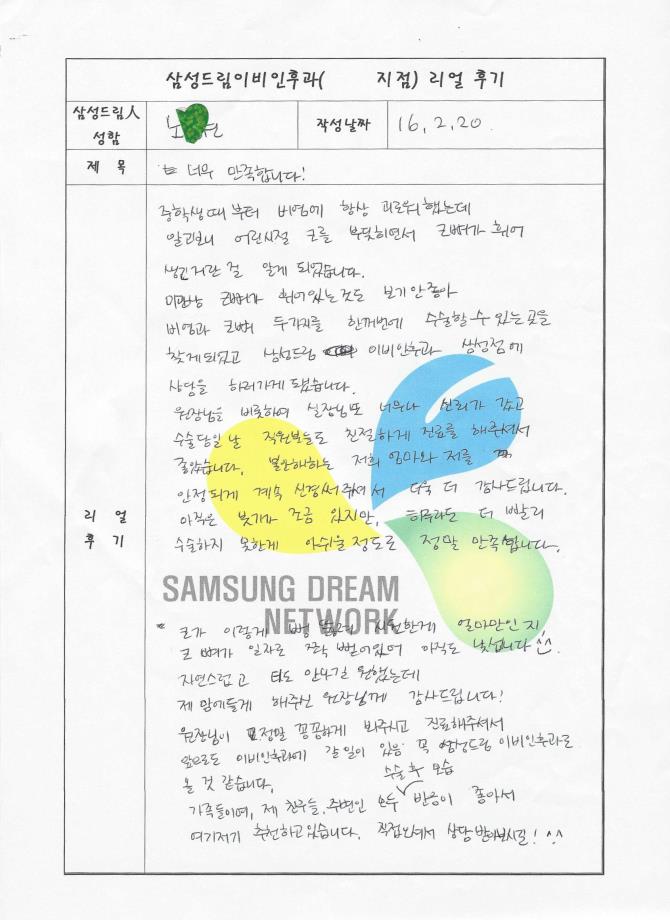 삼성드림이비인후과( 지점) 리얼 후기
삼성드림人 성함 노 작성날짜 16. 2. 20.
제 목 너무 만족합니다!
중학생때 부터 비염에 항상 괴로워했는데
알고보니 어린시절 코를 부딪히면서 코뼈가 휘어
생긴거란 걸 알게 되었습니다.
미관상 코뼈가 휘어있는것도 보기안좋아
비염과 코뼈 두가지를 한꺼번에 수술할 수 있는 곳을
찾게되었고 삼성드림 이비인후과 삼성점에
상담을 하러가게 됐습니다.
원장님을 비롯하여 실장님또 너무나 신뢰가 갔고
수술당일날 직원분들도 친절하게 진료를 해주셔서
좋았습니다. 불안해하는 저희 엄마와 저를
안정되게 계속 신경써주셔서 더욱 더 감사드립니다.
리 얼 후 기
아직은 붓기가 조금 있지만, 하루라도 더 빨리
수술하지 못한게 아쉬울정도로 정말 만족합니다.
SAMSUNG DREAM
NETWORK
코가 이렇게 뻥 뚫려 시원한게 얼마만인지
코 뼈가 일자로 쫙 뻗어있어 아직도 낯섭니다 ^^.
자연스럽고 티도 안나길 원했는데
제 맘에들게 해주신 원장님께 감사드립니다!
원장님이 정말 꼼꼼하게 봐주시고 진료해주셔서
앞으로도 이비인후과에 갈 일이 있음 꼭 삼성드림 이비인후과로
올 것 같습니다.
수술 후 모습
가족들이며, 제 친구들, 주변인 모두 반응이 좋아서
여기저기 추천하고있습니다. 직접오셔서 상담받아보시길! ^^